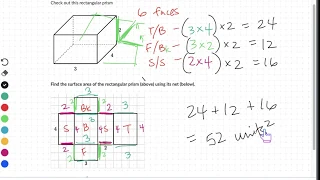 Check out this rectangular prism
6 faces
T/B - (3×4)×2 = 24
F/Bk - (3×2)×2 = 12
S/S - (2×4)×2 = 16
4
2
3
Find the surface area of the rectangular prism (above) using its net (below).
2 Bk 2 3
3
4 S 4 B 4 S 4 T 4
2 3 2 3
F
3
24 + 12 + 16
= 52 units²